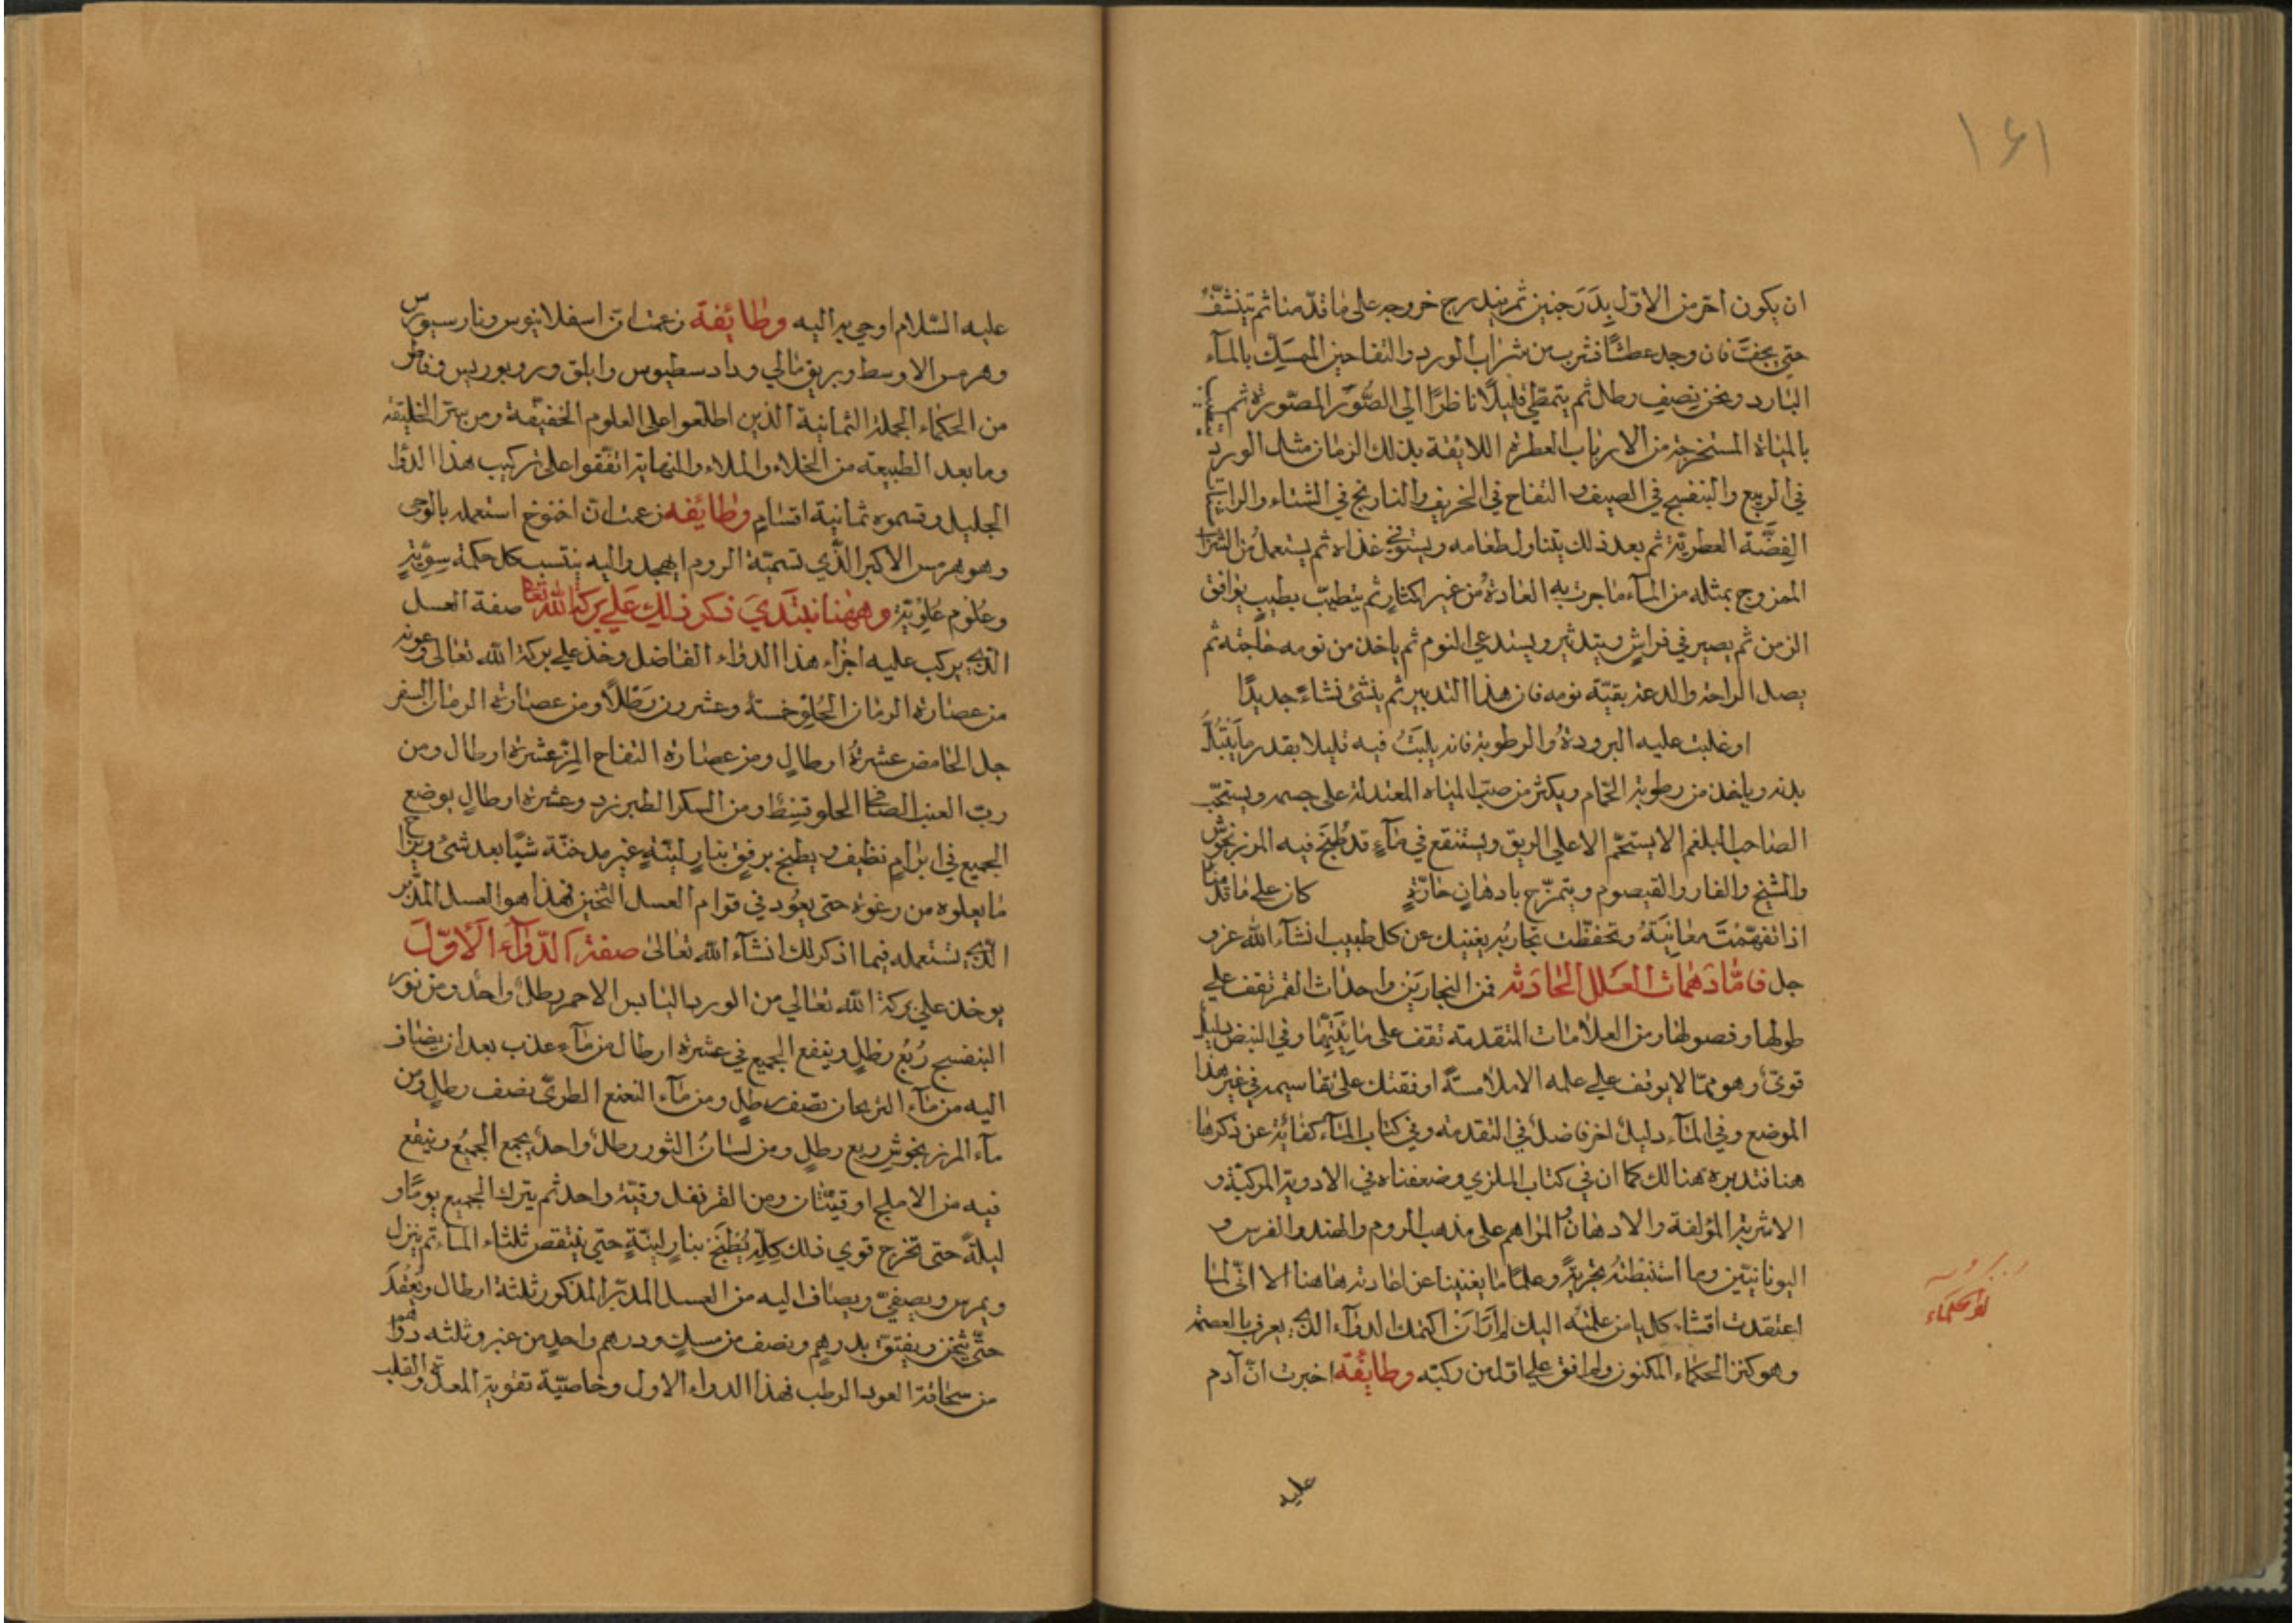 ١٤١
ان يكون احر من الاول بدرجتين ثم يتدرج خروجه على ما قدمنا ثم يتنشف
حتى يجف فان وجد عطشا فشرب من شراب الورد والتفاحين الممسك بالمآء
البارد ونحن نصف رطل ثم يتمطى قليلا ناظرا الى الصور المصورة ثم يتطيب
بالمياة المستخرجة من الارباب العطرة اللايقة بذلك الزمان مثل الورد
في الربيع والبنفسج في الصيف والتفاح في الخريف والنارنج في الشتاء
الفضة العطرية ثم بعد ذلك يتناول طعامه ويستوفي غذاه ثم يستعمل من الشراب
الممزوج بمثله من المآء ما جرت به العادة من غير اكثار ثم يتطيب بطيب يوافق
الزمن ثم يصير في فراش ويتدثر ويستدعي النوم ثم ياخذ من نومه حاجته ثم
يصل الراحة والدعة بقية نومه فان هذا التدبير ثم ينشئ نشاءً جديدًا
او غلبت عليه البرودة والرطوبة فانه يلبث فيه قليلا بقدر ما يبتل
بدنه وياخذ من رطوبة الحمام ويكثر من صب المياه المعتدلة على جسمه ويستحب
الصاحب البلغم الا يستحم الا على الريق ويستنقع في مآء قد طبخ فيه المرزنجوش
والشيح والغار والقيصوم ويتمرخ بادهان حارة كان على ما قدمنا
اذا تفهمت معانيه وتحفظت تجاربه يغنيك عن كل طبيب انشآء الله عز و
جل فاما دهمات العلل الحادثه فمن النجارين واحداث القمر تقف على
طولها وقصولها ومن العلامات المتقدمة تقف على مائيتها وفي النبض دليل
قوي وهو مما لا يوقف على علمه الا ملامسة اوقفتك على تقاسيمه في غير هذا
الموضع وفي المآء دليل اخر فاضل في التقدمة وفي كتاب المآء كفاية عن ذكرها
هنا فتدبره هنالك كما ان في كتاب الملزي وضعفناه في الادوية المركبة و
الاشربة المؤلفة والادهان والمراهم على مذهب الروم والهند والفرس و
اليونانيين وما استنبطته بتجربة وعلما ما يغنينا عن اعادته هاهنا الا انى لما
اعتقدت افشاء كل يا من علمته اليك لم ار ان اكتمك الدوآء الذي يعرف بالعصمة
وهو كنز الحكماء المكنون ولم اقف على اول من ركبه وطائفة اخبرت ان آدم
كنز الحكماء
عليه
عليه السلام اوحي به اليه وطائفة زعمت ان اسفلانيوس ونارسيورس
وهرمس الاوسط وبريق مالي وداد سطيوس وابلق وروبوريس
من الحكماء الجملة الثمانية الذين اطلعوا على العلوم الخفيفة ومن الخليقة
وما بعد الطبيعة من الخلاء والملاء والنهاية اتفقوا على تركيب هذا الدوا
الجليل وقسموه ثمانية اقسام وطائفه زعمت ان اخنوخ استعمله بالوحي
وهو هرمس الاكبر الذي تسميه الروم ابهجد واليه ينتسب كل حكمة سرية
وعلوم علوية وههنا نبتدي ذكر ذلك على بركة الله تعا صفة العسل
الذي يركب عليه اجزاء هذا الدواء الفاضل وخذ على بركة الله تعالى وعونه
من عصارة الرمان الحلو خمسة وعشرون رطلا ومن عصارة الرمان السفر
جل الحامض عشرة ارطال ومن عصارة التفاح المز عشرة ارطال ومن
رب العنب الصافي الحلو قسط ومن السكر الطبرزد وعشرة ارطال يوضع
الجميع في ابرام نظيف ويطبخ برفق بنار لينة غير مدخنة شيا بعد شئ وينزع
ما يعلوه من رغوة حتى يعود في قوام العسل الثخين فهذا هو العسل المدبر
الذي تستعمله فيما اذكر لك انشآء الله تعالى صفة الدوآء الاول
يوخذ على بركة الله تعالي من الورد اليابس الاحمر رطل واحد ومن نور
البنفسج ربع رطل وينقع الجميع في عشرة ارطال من مآء عذب بعد ان يضاف
اليه من مآء الريحان نصف رطل ومن مآء النعنع الطري نصف رطل ومن
مآء المرزنجوش ربع رطل ومن لسان الثور رطل واحد يجمع الجميع وينقع
فيه من الاملج اوقيتان ومن القرنفل وقية واحد ثم يترك الجميع يوما و
ليلة حتى تخرج قوي ذلك كله يطبخ بنار لينة حتى ينتقص ثلثاء الماء ثم ينزل
ويمرس ويصفى ويضاف اليه من العسل المدبر المذكور ثلثة ارطال ويعقد
حتى يثخن ويفتق بدرهم ونصف من مسك ودرهم واحد من عنبر وثلثه دراهم
من سحاقة العود الرطب فهذا الدواء الاول وخاصية تقوية المعدة والقلب